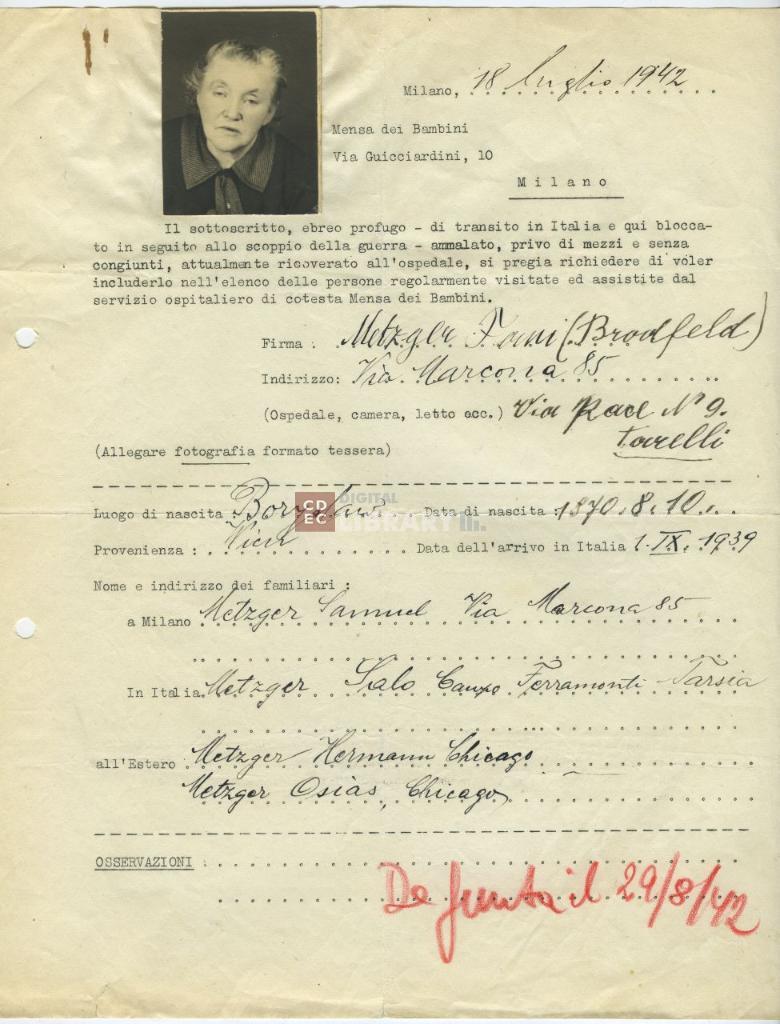 Milano, 18 luglio 1942
Mensa dei Bambini
Via Guicciardini, 10
Milano
Il sottoscritto, ebreo profugo - di transito in Italia e qui blocca-
to in seguito allo scoppio della guerra - ammalato, privo di mezzi e senza
congiunti, attualmente ricoverato all'ospedale, si pregia richiedere di voler
includerlo nell'elenco delle persone regolarmente visitate ed assistite dal
servizio ospitaliero di cotesta Mensa dei Bambini.
Firma : Metzger Fani (Brodfeld)
Indirizzo: Via Marcona 85
(Ospedale, camera, letto ecc.) Via Pace N° 9.
(Allegare fotografia formato tessera)
CDEC DIGITAL LIBRARY
Luogo di nascita : Boryslaw Data di nascita : 1870.8.10.
Provenienza : Data dell'arrivo in Italia 1.IX.1939
Nome e indirizzo dei familiari :
a Milano Metzger Samuel Via Marcona 85
In Italia Metzger Salo Campo Ferramonti Tarsia
all'Estero Metzger Hermann Chicago
Metzger Osias, Chicago
OSSERVAZIONI :
Defunta il 29/8/42